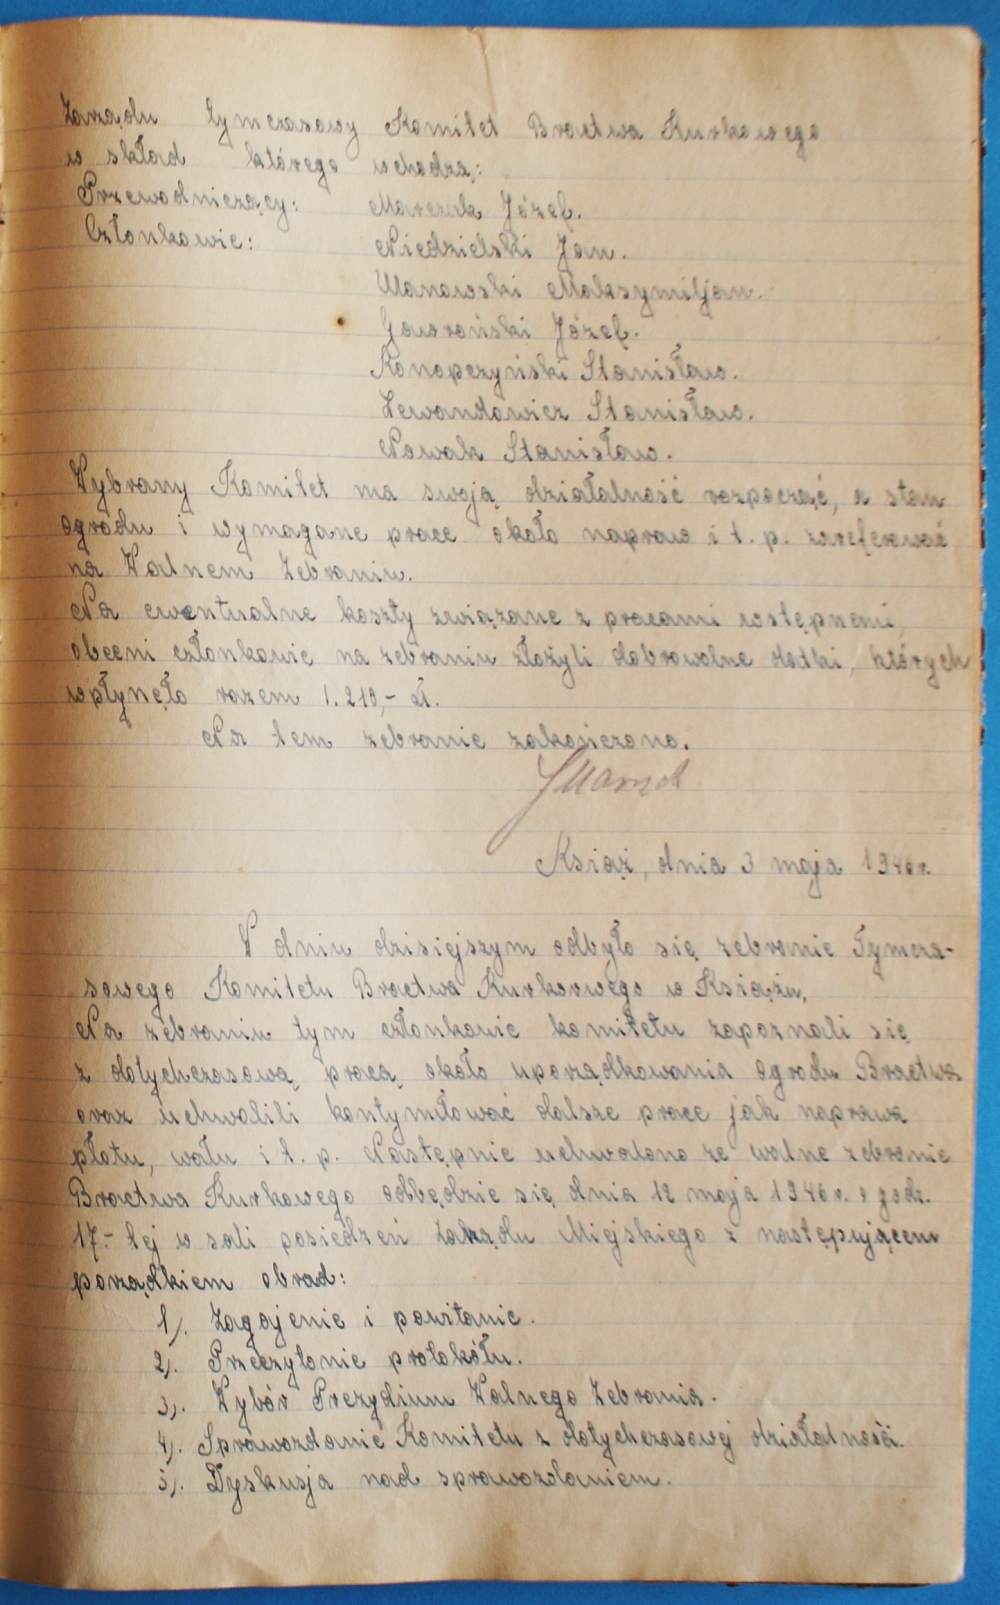 Zarządu tymczasowy Komitet Bractwa Kurkowego
w skład którego wchodzą:
Przewodniczący: Marczak Józef.
Członkowie: Niedzielski Jan.
Ulanowski Maksymiljan.
Gaworoński Józef.
Konopczyński Stanisław.
Lewandowicz Stanisław.
Nowak Stanisław.
Wybrany Komitet ma swoją działalność rozpocząć, a stan
ogrodu i wymagane prace około napraw i t. p. zareferować
na Walnem Zebraniu.
Na ewentualne koszty związane z pracami wstępnemi,
obecni członkowie na zebraniu złożyli dobrowolne datki, których
wpłynęło razem 1.210,- zł.
Na tem zebranie zakończono.
Książ, dnia 3 maja 1946 r.
W dniu dzisiejszym odbyło się zebranie Tymcza-
sowego Komitetu Bractwa Kurkowego w Książu.
Na zebraniu tym członkowie komitetu zapoznali się
z dotychczasową pracą około uporządkowania ogrodu Bractwa
oraz uchwalili kontynułować dalsze prace jak naprawa
płotu, wału i t. p. Następnie uchwalono że walne zebranie
Bractwa Kurkowego odbędzie się dnia 12 maja 1946 r. o godz.
17.- tej w sali posiedzeń Zarządu Miejskiego z następującem
porządkiem obrad:
1). Zagajenie i powitanie.
2). Przeczytanie protokółu.
3). Wybór Prezydium Walnego Zebrania.
4). Sprawozdanie Komitetu z dotychczasowej działalności.
5). Dyskusja nad sprawozdaniem.